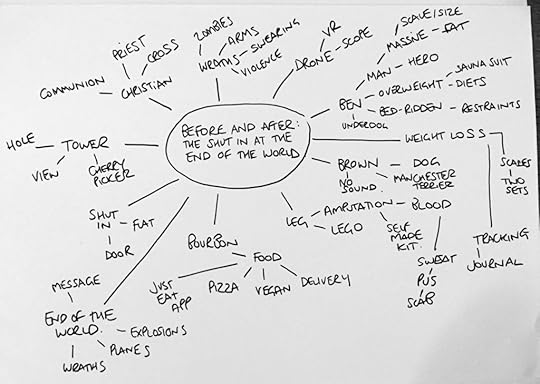 ZOMBIES
ARMS
SWEARING
WRATHS
VIOLENCE
VR
DRONE - SCOPE
SCALE/SIZE
MASSIVE - FAT
MAN - HERO
SAUNA SUIT
OVERWEIGHT - DIETS
BEN
BED-RIDDEN - RESTRAINTS
UNDERDOG
PRIEST
CROSS
COMMUNION
CHRISTIAN
BEFORE AND AFTER:
THE SHUT IN AT THE
END OF THE WORLD
HOLE
TOWER
VIEW
CHERRY
PICKER
WEIGHT LOSS
SCALES
TWO
SETS
TRACKING
JOURNAL
BROWN - DOG
NO
SOUND.
MANCHESTER
TERRIER
LEG
AMPUTATION - BLOOD
LEGO
SELF
MADE
KIT.
SWEAT
PUS
SCAB
SHUT
IN
FLAT
DOOR
BOURBON
FOOD
JUST
EAT
APP
PIZZA
VEGAN
DELIVERY
MESSAGE
END OF THE
WORLD.
EXPLOSIONS
PLANES
WRATHS